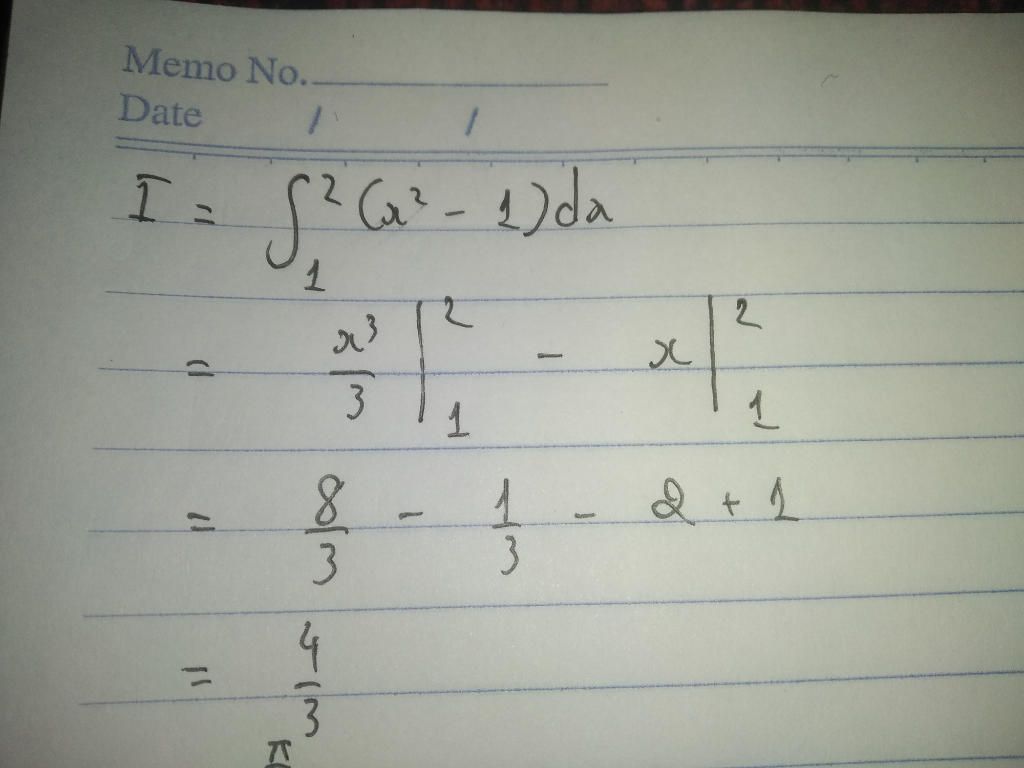 Memo No.
Date / /
I = ∫₁² (x² - 1)dx
= x³/3 |₁² - x |₁²
= 8/3 - 1/3 - 2 + 1
= 4/3
π